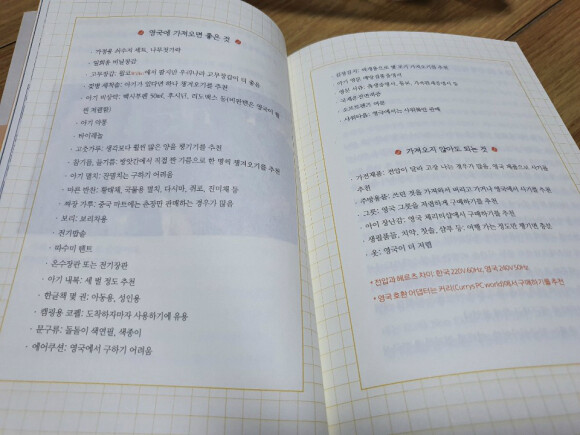 영국에 가져오면 좋은 것
· 가정용 쇠수저 세트, 나무젓가락
· 일회용 비닐장갑
· 고무장갑: 윌코에서 팔지만 우리나라 고무장갑이 더 좋음
· 돗자리
· 아기 비상약: 맥시부펜 50ml, 후시딘, 리도맥스 등
· 아기 약통
· 바이페놀
· 고춧가루: 생각보다 훨씬 많은 양을 챙기기를 추천
· 참기름, 들기름: 방앗간에서 직접 짠 기름으로 한 병씩 챙겨오기를 추천
· 아기 멸치: 잔멸치는 구하기 어려움
· 마른 반찬: 황태채, 국물용 멸치, 다시마, 쥐포, 진미채 등
· 짜장 가루: 중국 마트에는 춘장만 판매하는 경우가 많음
· 보리: 보리차용
· 전기밥솥
· 따수미 텐트
· 온수장판 또는 전기장판
· 아기 내복: 세 벌 정도 추천
· 한글책 몇 권: 아동용, 성인용
· 캠핑용 코펠: 도착하자마자 사용하기에 유용
· 문구류: 돌돌이 색연필, 색종이
· 에어쿠션: 영국에서 구하기 어려움
아기 영문 예방접종증명서
국제운전면허증
· 소프트렌즈 여분
· 샤워타올: 영국에서는 샤워볼만 판매
가져오지 않아도 되는 것
· 가전제품: 전압이 달라 고장 나는 경우가 많음, 영국 제품으로 사기를
추천
· 주방용품: 쓰던 것을 가져와서 버리고 가거나 영국에서 사기를 추천
· 그릇: 영국 그릇을 저렴하게 구매하기를 추천
· 아이 장난감: 영국 채리티샵에서 구매하기를 추천
· 생필품들, 치약, 칫솔, 샴푸 등: 여행 가는 정도만 챙기면 충분
· 옷: 영국이 더 저렴
* 전압과 헤르츠 차이: 한국 220V 60Hz, 영국 240V 50Hz
* 영국 호환 어댑터는 커리(Currys PC world)에서 구매하기를 추천